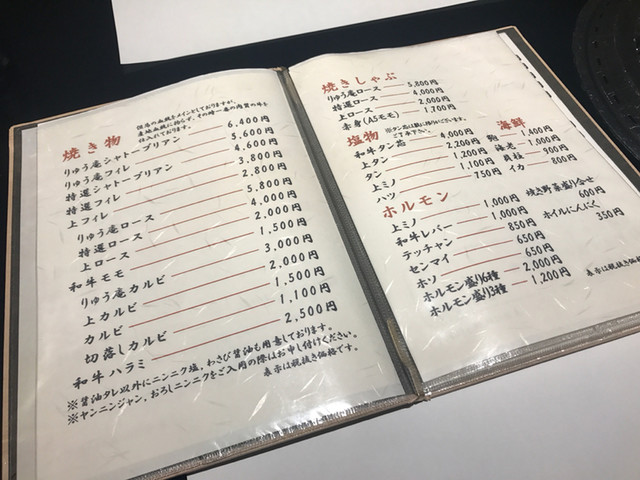 焼き物
但馬の血統をメインとしておりますが、
産地血統に拘らず、その時一番の肉質の牛を
仕入れております。
りゅう庵シャトーブリアン 6,400円
りゅう庵フィレ 5,600円
特選シャトーブリアン 4,600円
特選フィレ 3,800円
上フィレ 2,800円
りゅう庵ロース 5,800円
特選ロース 4,000円
上ロース 2,000円
和牛モモ 1,500円
りゅう庵カルビ 3,000円
上カルビ 2,000円
カルビ 1,500円
切落しカルビ 1,100円
和牛ハラミ 2,500円
※醤油タレ以外にニンニク塩，わさび醤油も用意しております。
※ヤンニンジャン，おろしニンニクをご入用の際はお申し付けください。
表示は税抜き価格です。
焼きしゃぶ
りゅう庵ロース 5,800円
特選ロース 4,000円
上ロース 2,000円
赤身(A5モモ) 1,700円
塩物
ご了承下さい。
和牛タン芯 4,000円
上タン 2,200円
タン 1,200円
上ミノ 1,100円
ハツ 750円
海鮮
鮑
海老 1,000円
貝柱 900円
イカ 800円
ホルモン
上ミノ 1,000円
和牛レバー 1,000円
テッチャン 850円
センマイ 650円
ホソ 650円
ホルモン盛り6種 2,000円
ホルモン盛り3種 1,200円
焼き野菜盛り合せ
600円
ホイルにんにく
350円
表示は税抜き価格